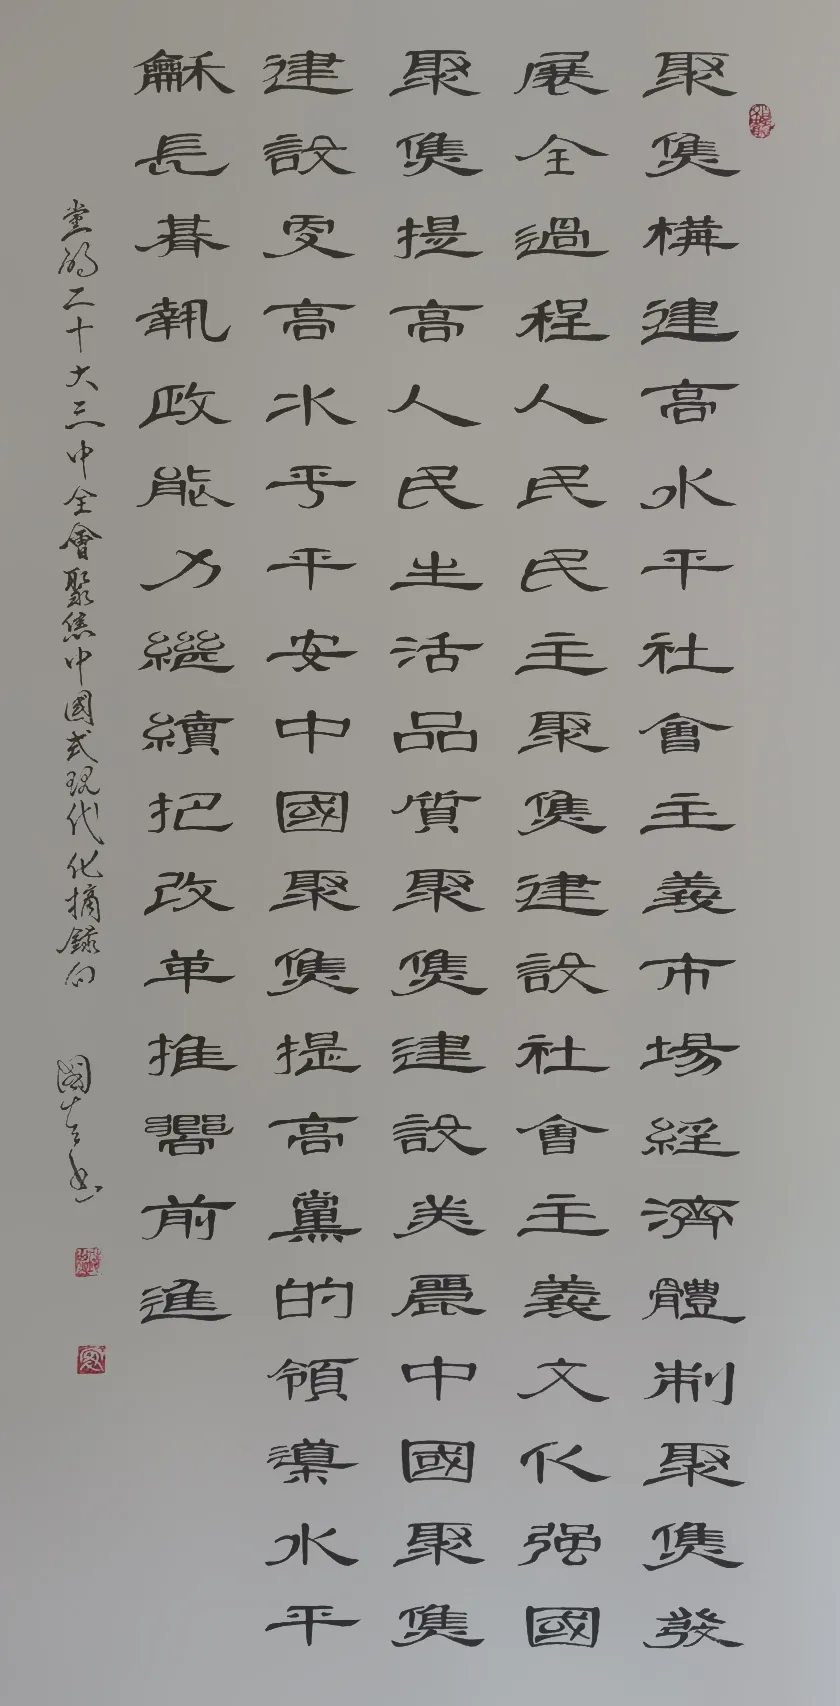 聚焦構建高水平社會主義市場經濟體制聚焦發
展全過程人民民主聚焦建設社會主義文化强國
聚焦提高人民生活品質聚焦建設美麗中國聚焦
建設更高水平平安中國聚焦提高黨的領導水平
龢長朞執政能力繼續把改革推嚮前進
党的二十大三中全會聚焦中國式現代化摘録句